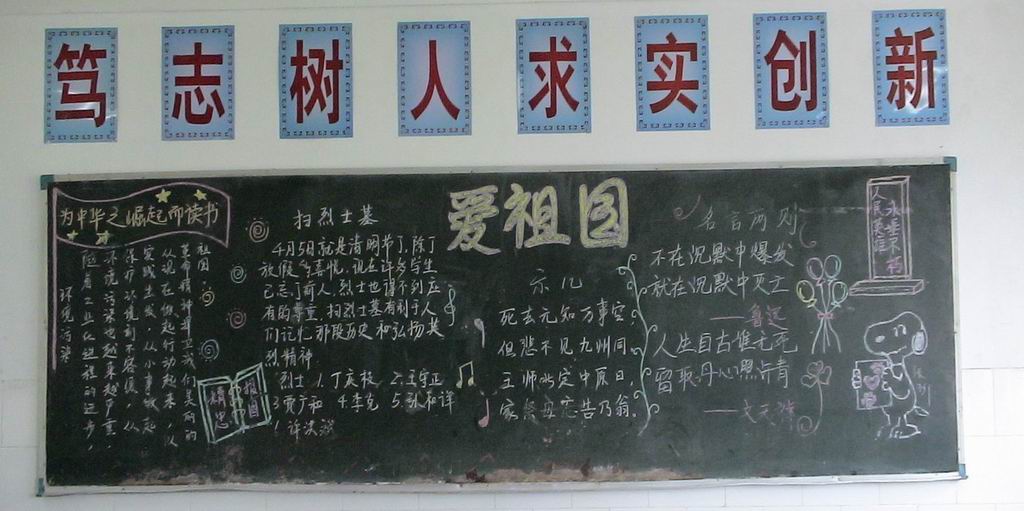 笃志树人求实创新
爱祖国
为中华之崛起而读书
环境污染
随着工业化进程的进步,
环境污染也越来越严重,
保护环境刻不容缓,从
实践出发,从小事做起
从现在做起行动起来,以
革命精神捍卫我们美丽的
祖国。
精忠
报国
扫烈士墓
4月5日就是清明节了,除了
放假多喜悦,现在许多学生
已忘了前人,烈士也得不到应
有的尊重,扫烈士墓有利于人
们记忆那段历史和弘扬其
烈精神
烈士 1.丁庆枝 2.王守正
3.贾广和 4.李克 5.孙和祥
示儿
死去元知万事空,
但悲不见九州同。
王师北定中原日,
家祭毋忘告乃翁。
名言两则
不在沉默中爆发
就在沉默中灭亡
——鲁迅
人生自古谁无死
留取丹心照汗青
——文天祥
人民英雄
永垂不朽